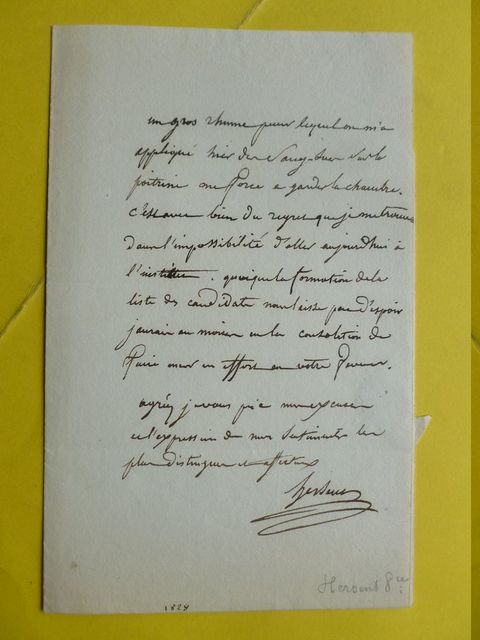 un gros rhume pour lequel on m'a
appliqué hier des Sangsues Sur la
poitrine me force a garder la chambre.
C'est avec bien du regret que je me trouve
dans l'impossibilité d'aller aujourdhui à
l'institut. quoique la formation de la
liste des candidats nous laisse peu d'espoir
jaurais au moins eu la consolation de
faire encor un effort en votre faveur.
agréez je vous prie mes excuses
et l'expression de mes Sentiments les
plus distingués et affectueux
hersent
Hersent
1824